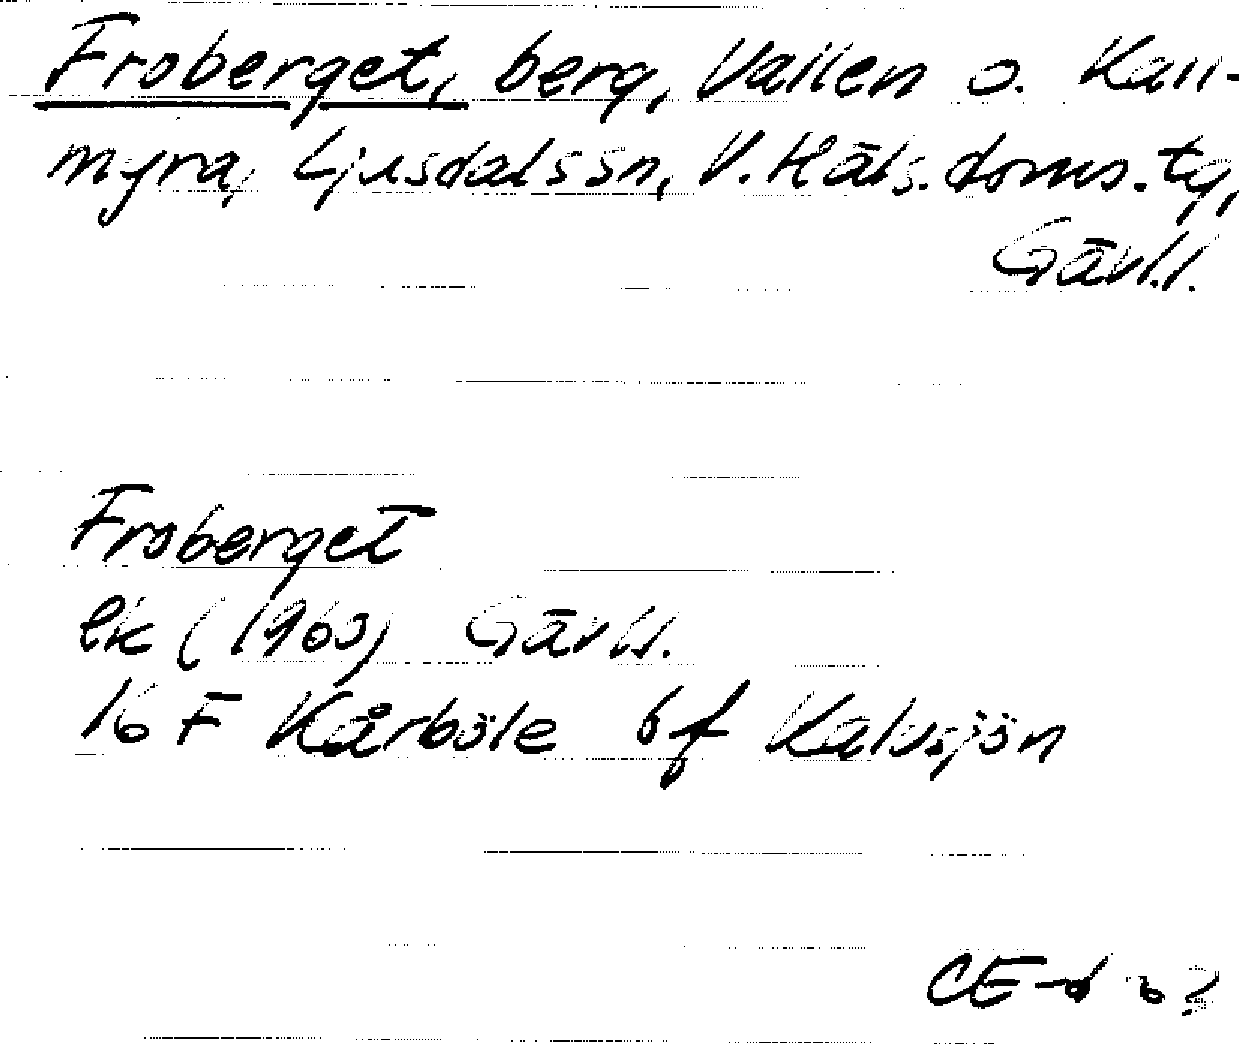 Froberget, berg, Vallen o. Kall-
myra, Ljusdals sn, V. Häls. doms. tg,
Gävl.l.
Froberget
ek (1960) Gävl.l.
16 F Kårböle 6f Kalvsjön